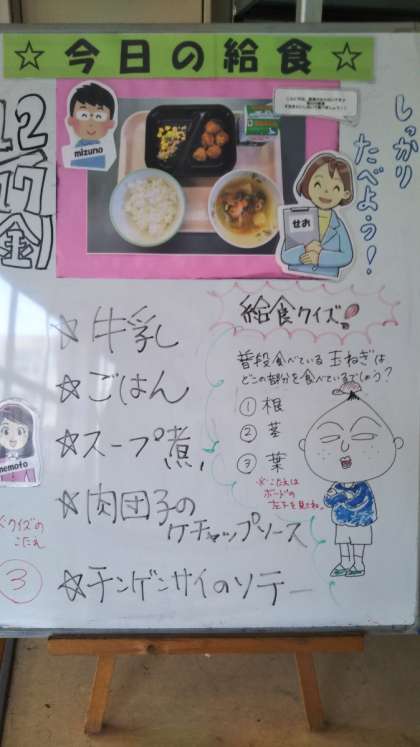 ☆今日の給食☆
12/17(金)
しっかり
たべよう!
mizuno
せお
☆牛乳
☆ごはん
☆スープ煮
☆肉団子の
ケチャップソース
☆チンゲンサイのソテー
給食クイズ
普段食べている玉ねぎは
どこの部分を食べているでしょう?
①根
②茎
③葉
※こたえは
ボードの
左下を見てね。
nemoto
※クイズの
こたえ
③